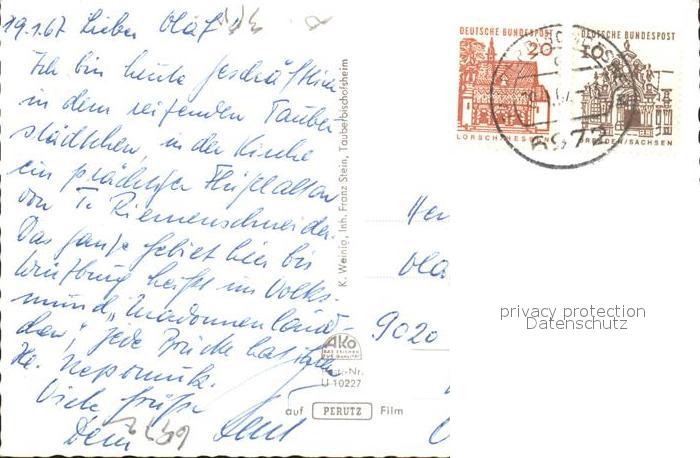 19.1.67 Lieber Olaf!
Ich bin heute geschäftlich
in dem reizenden Tauber
städtchen, in der Kirche
ein prächtiger Flügelaltar
von T. Riemenschneider.
Das ganze Gebiet hier bis
Würzburg heißt im Volks-
mund „Madonnenländ-
chen", jede Brücke hat ihren
Hl. Nepomuk.
Viele Grüße
Dein
K. Weinig, Inh. Franz Stein, Tauberbischofsheim
DEUTSCHE BUNDESPOST
20
LORSCH/HESSEN
DEUTSCHE BUNDESPOST
DRESDEN/SACHSEN
6972
Her
Ola
9020
AKO
DAS ZEICHEN
FÜR QUALITÄT
U 10227
auf PERUTZ Film
privacy protection
Datenschutz